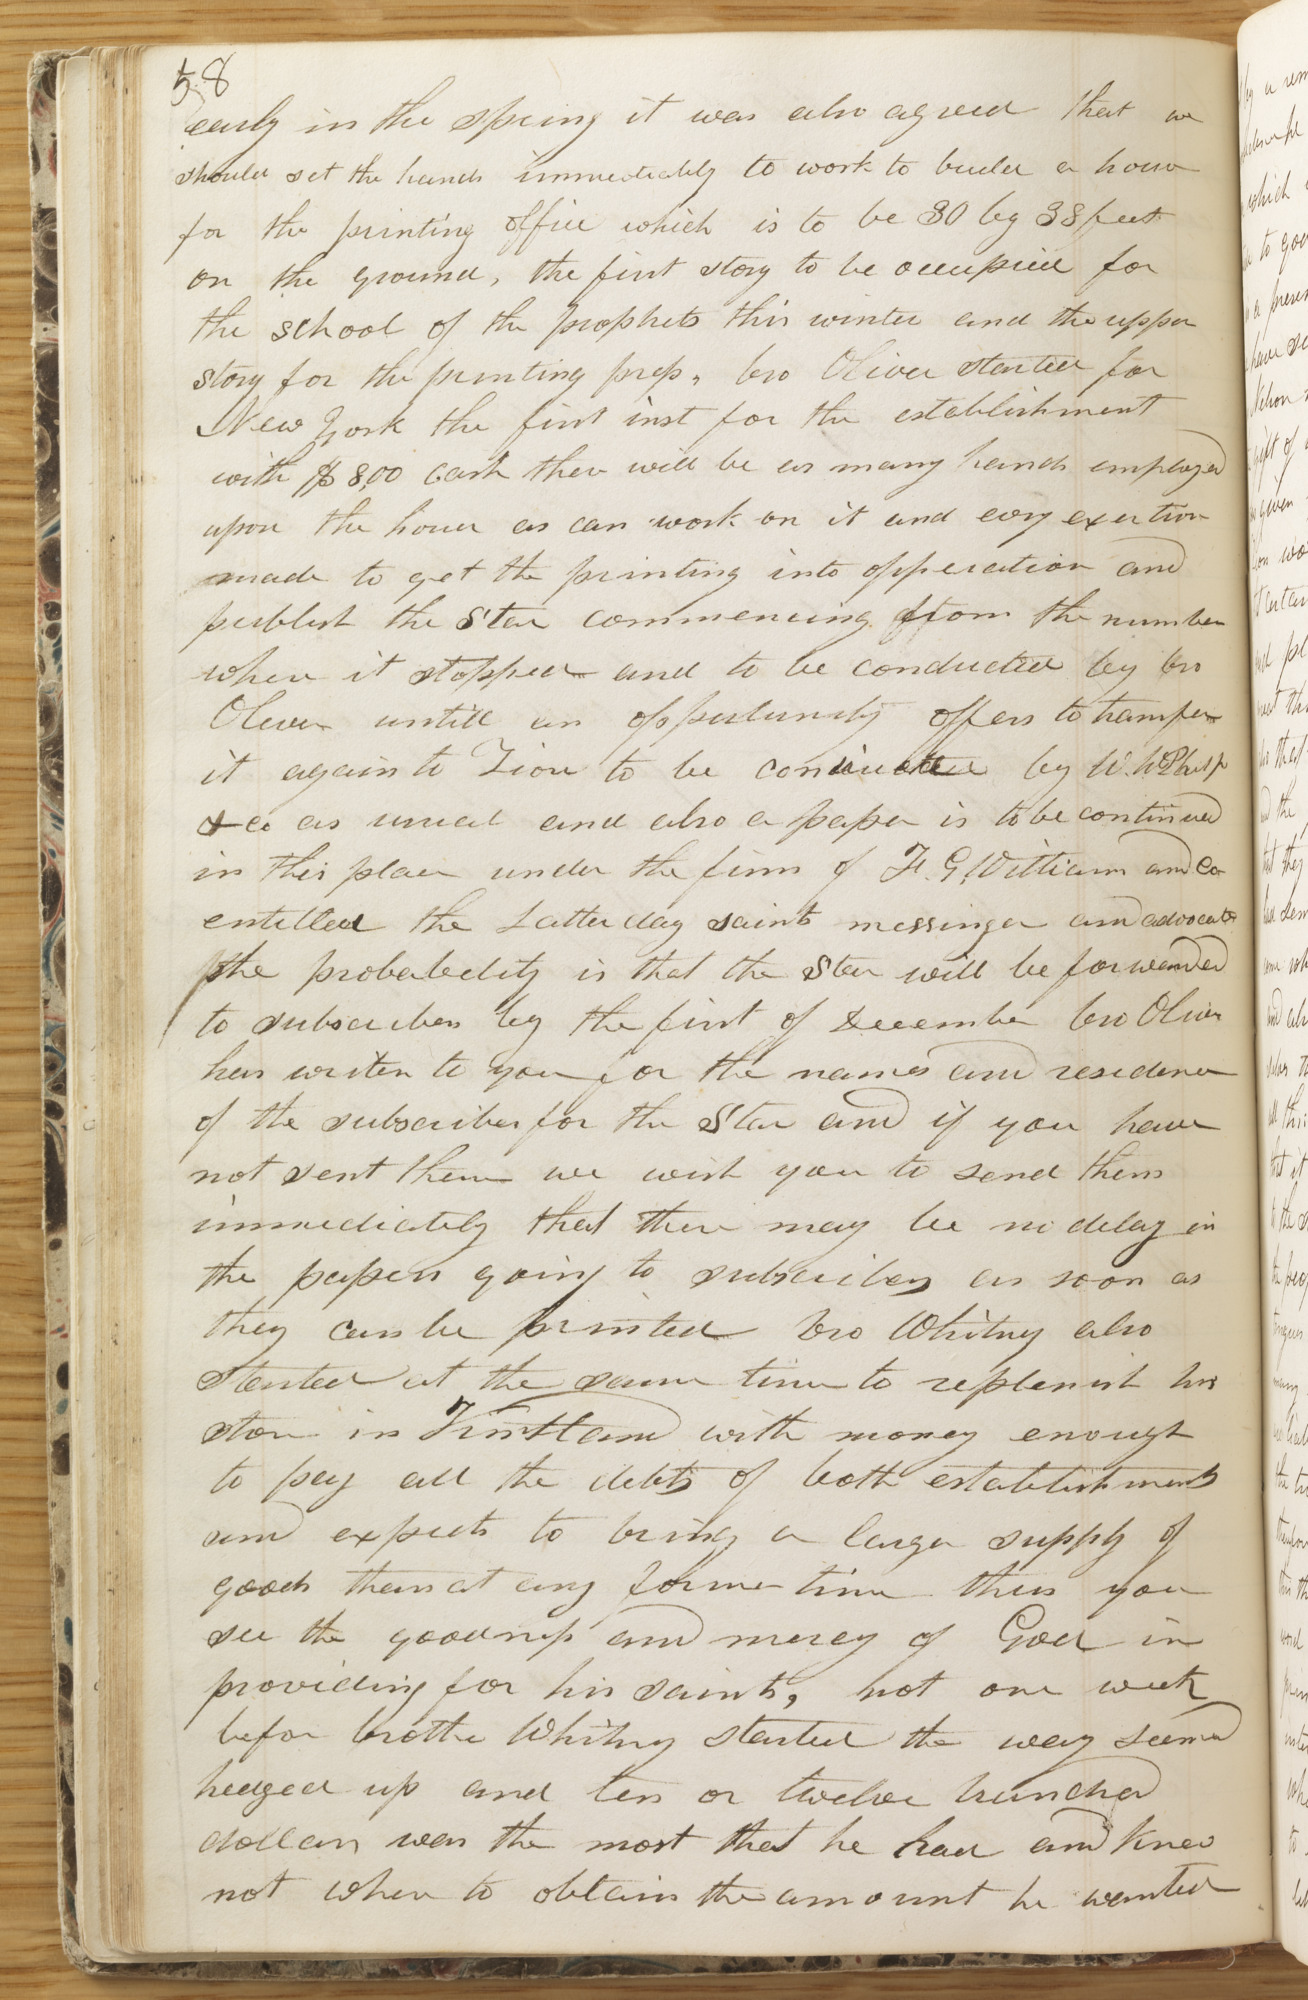 58
early in the spring it was also agreed that we
should set the hands immediately to work to build a house
for the printing office which is to be 30 by 38 feet
on the ground, the first story to be occupied for
the school of the prophets this winter and the upper
story for the printing press, bro Oliver started for
New York the first inst for the establishment
with $800 cash there will be as many hands employed
upon the house as can work on it and evry exertion
made to get the printing into opperation and
publish the Star commencing from the number
where it stopped and to be conducted by bro
Oliver untill an oppertunity offers to transfer
it again to Zion to be conducted by W. W Phelps
& co as usual and also a paper is to be continued
in this place under the firm of F. G. William and Co
entitled the Latter day saints messinger and advocate
the probability is that the Star will be forwarded
to subscribers by the first of December bro Oliver
has writen to you for the names and residence
of the subscribers for the Star and if you have
not sent them we wish you to send them
immediately that there may be no delay in
the papers going to subscribers as soon as
they can be printed bro Whitney also
started at the same time to replenish his
store in Kirtland with money enough
to pay all the debts of both establishments
and expects to bring a larger supply of
goods than at any former time thus you
see the goodness and mercy of God in
providing for his saints, not one week
befor brother Whitny started the way seemed
hedged up and ten or twelve hundred
dollars was the most that he had and knew
not where to obtain the amount he wanted